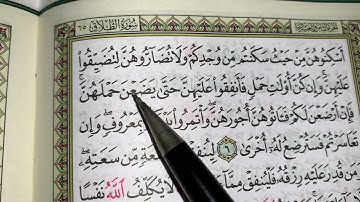 سُورَةُ الطَّلَاقِ ٦٥
أَسْكِنُوهُنَّ مِنْ حَيْثُ سَكَنتُم مِّن وُجْدِكُمْ وَلَا تُضَآرُّوهُنَّ لِتُضَيِّقُوا۟
عَلَيْهِنَّ ۚ وَإِن كُنَّ أُو۟لَٰتِ حَمْلٍ فَأَنفِقُوا۟ عَلَيْهِنَّ حَتَّىٰ يَضَعْنَ حَمْلَهُنَّ ۚ
فَإِنْ أَرْضَعْنَ لَكُمْ فَـَٔاتُوهُنَّ أُجُورَهُنَّ ۖ وَأْتَمِرُوا۟ بِمَعْرُوفٍ ۖ وَإِن
تَعَاسَرْتُمْ فَسَتُرْضِعُ لَهُۥٓ أُخْرَىٰ ٦ لِيُنفِقْ سَعَةٍ مِّن سَعَتِهِۦ ۖ
وَمَن قُدِرَ عَلَيْهِ رِزْقُهُۥ فَلْيُنفِقْ مِمَّآ لَا يُكَلِّفُ ٱللَّهُ نَفْسًا